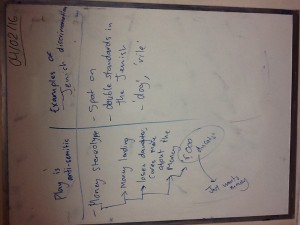 04/02/16
Examples of
Jewish discrimination
- Spat on
- double standards in
the Jewish
- 'dog', 'vile'
Play is
anti-semitic
- Money stereotype
Money lending
loses daughter,
cares more
about the
money
ducats
wants
money